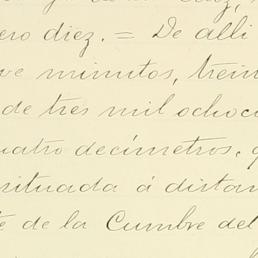 ero diez. = De alli
ve minutos, trein
de tres mil ochoci
uatro decímetros, q
situada á distan
te de la Cumbre del